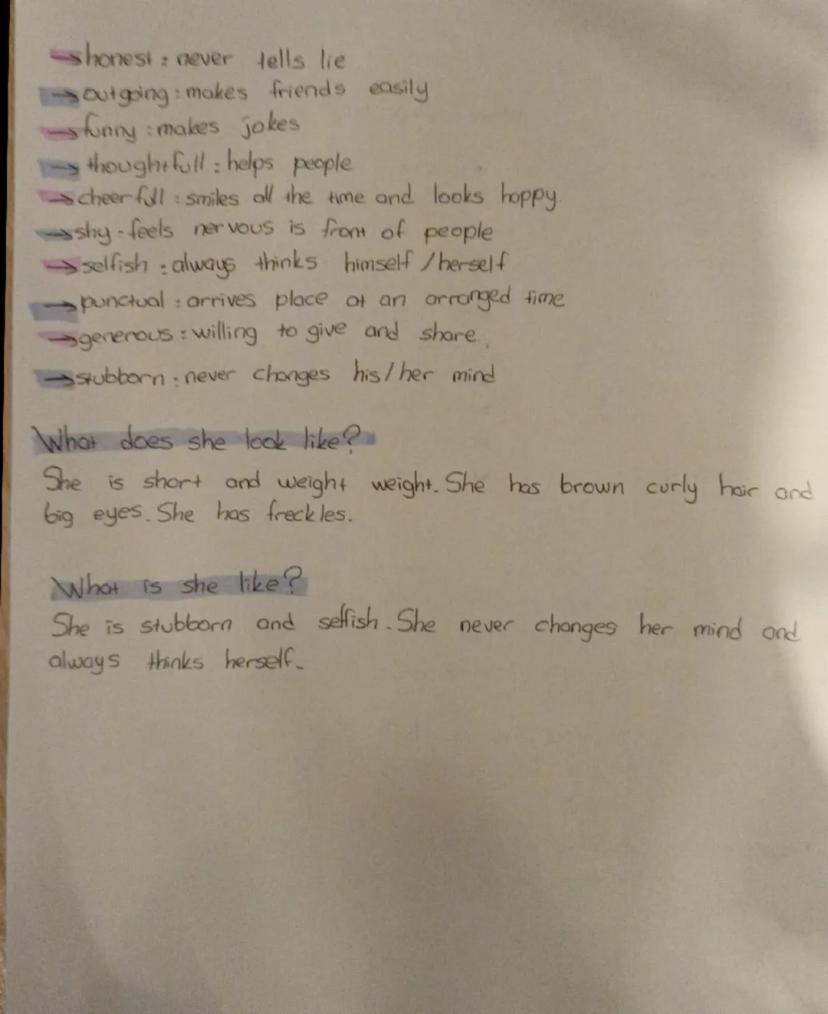 →honest : never tells lie
→outgoing : makes friends easily
→funny : makes jokes
→thoughtfull : helps people
→cheerfull : smiles all the time and looks happy
→shy - feels nervous is front of people
→selfish : always thinks himself / herself
→punctual : arrives place at an arranged time
→generous : willing to give and share.
→stubborn : never changes his / her mind
What does she look like?
She is short and weight weight. She has brown curly hair and
big eyes. She has freckles.
What is she like?
She is stubborn and selfish. She never changes her mind and
always thinks herself.